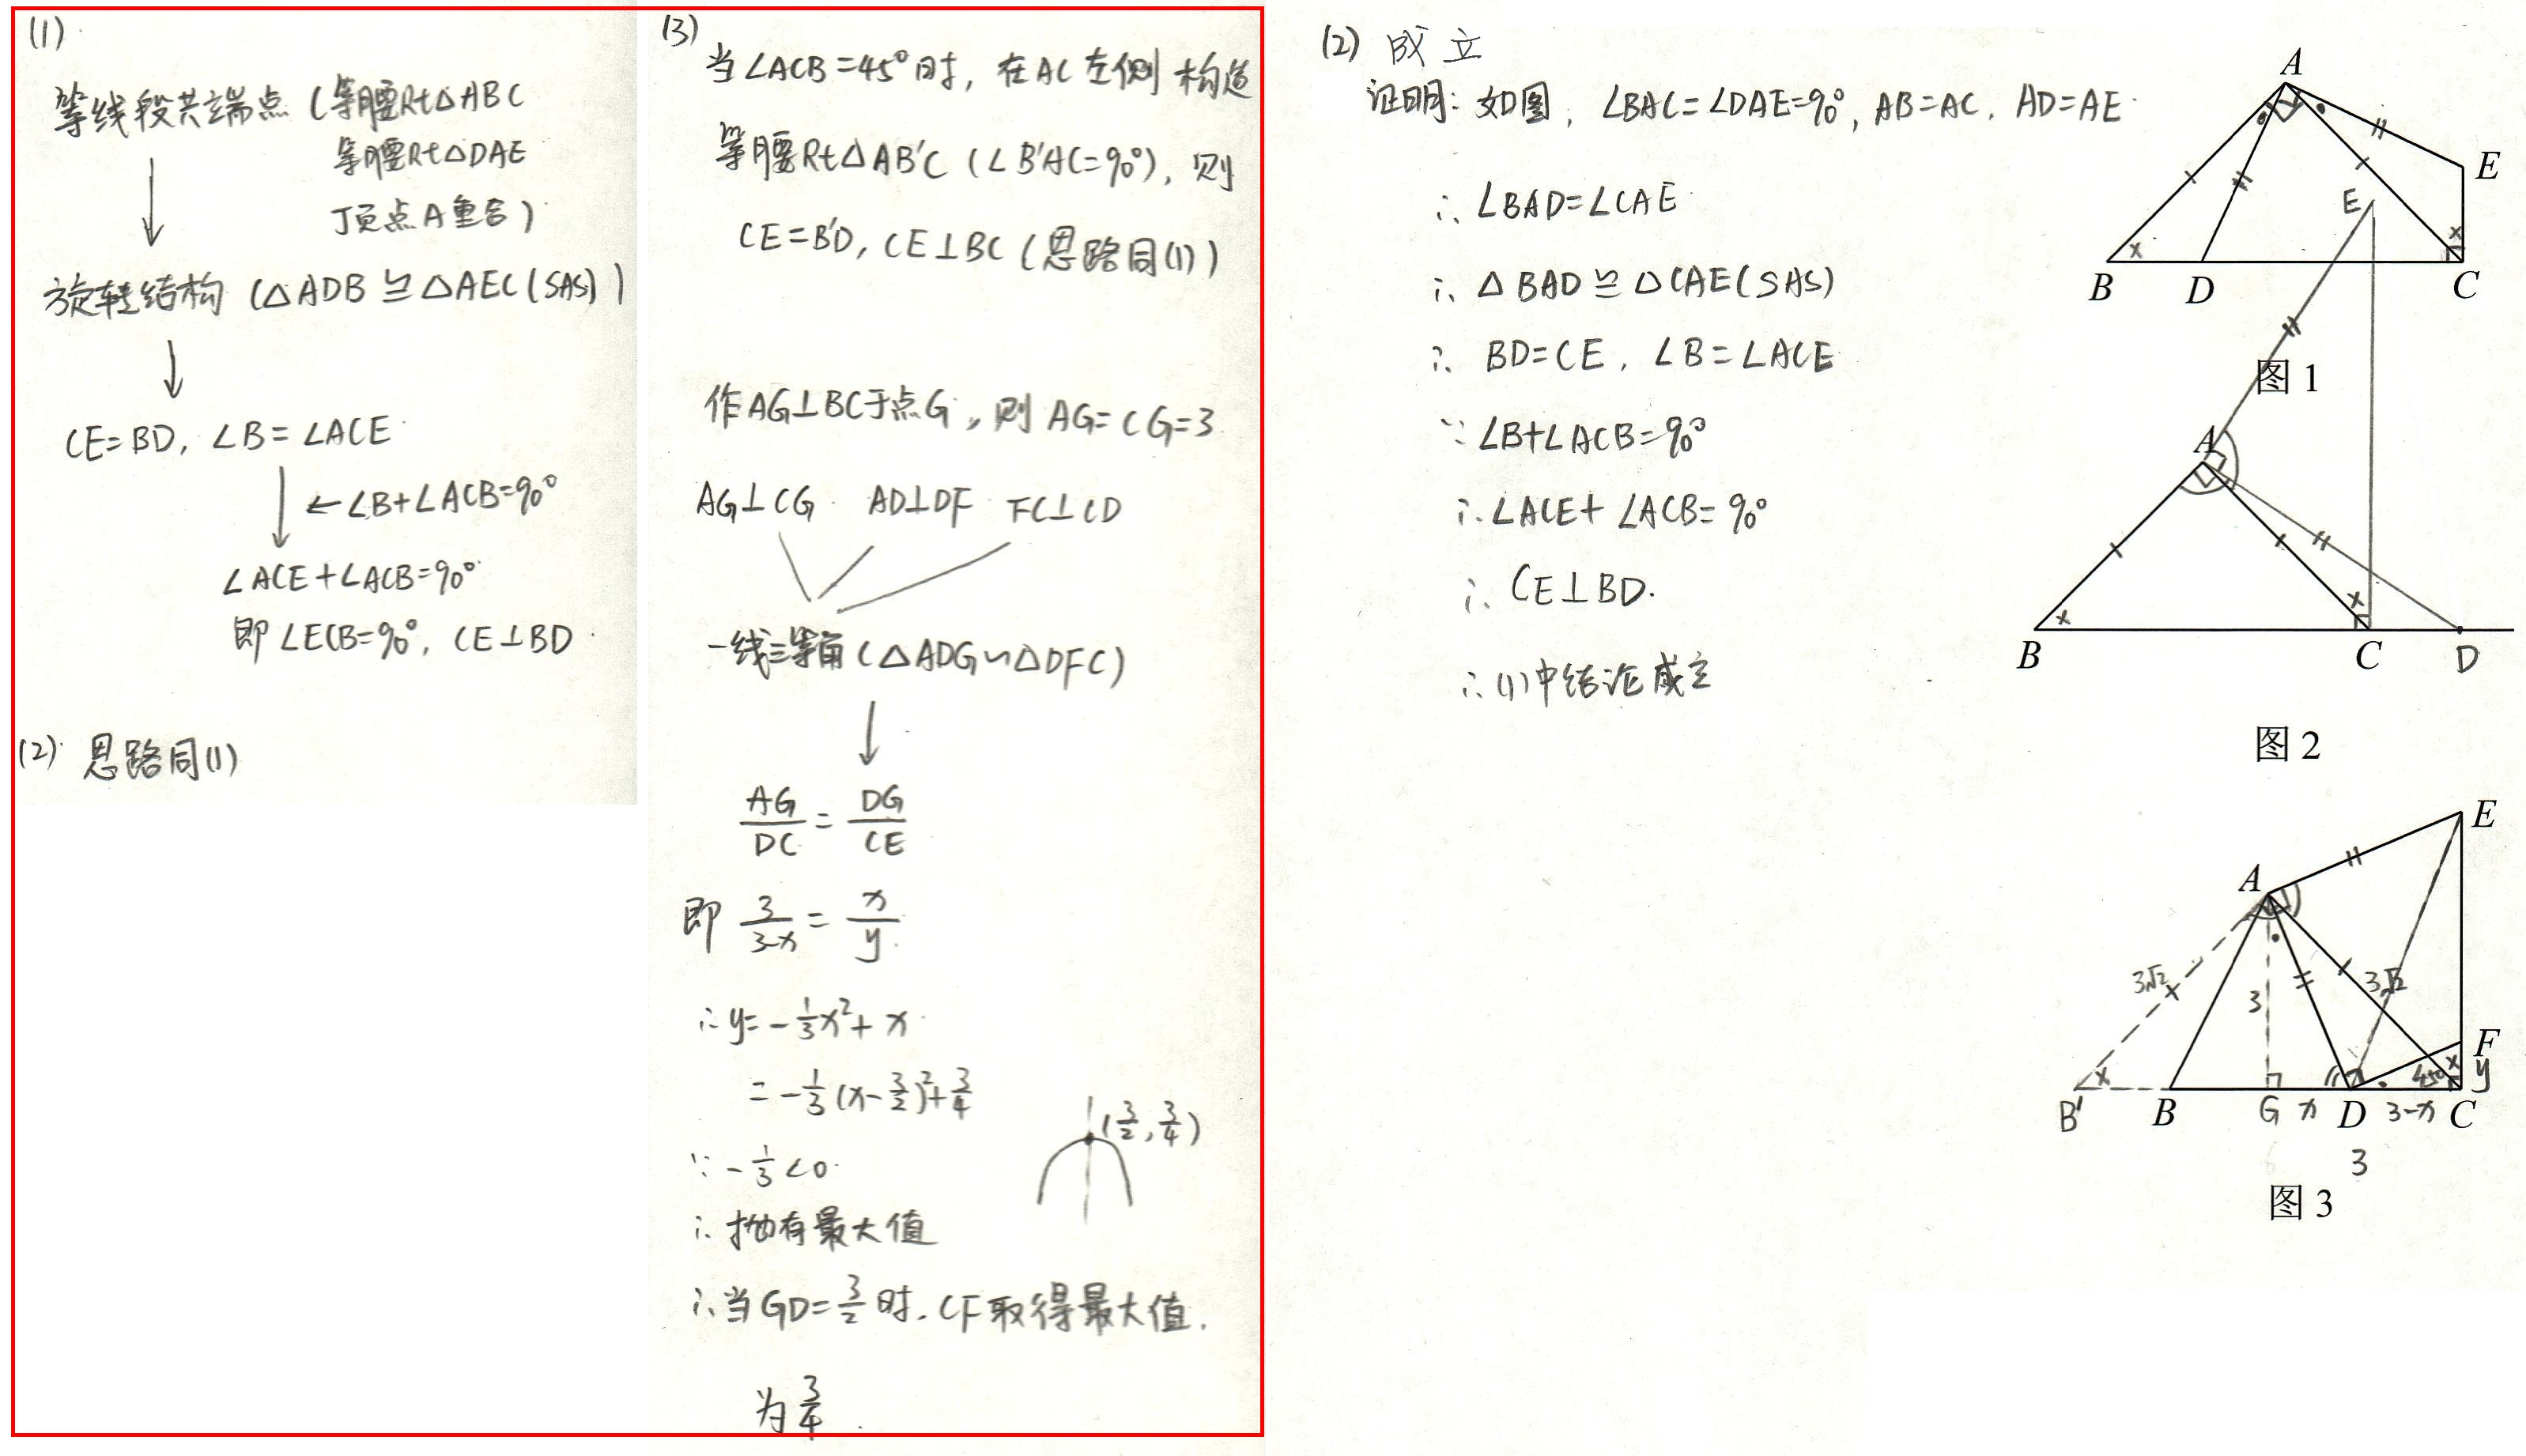 (1)
等线段共端点 (等腰Rt△ABC
等腰Rt△DAE
顶点A重合)
↓
旋转结构 (△ADB≌△AEC(SAS))
↓
CE=BD, ∠B=∠ACE
↓ ←∠B+∠ACB=90°
∠ACE+∠ACB=90°
即∠ECB=90°, CE⊥BD
(2) 思路同(1)
(3)
当∠ACB=45°时, 在AC左侧构造
等腰Rt△AB'C (∠B'AC=90°), 则
CE=B'D, CE⊥BC (思路同(1))
作AG⊥BC于点G, 则AG=CG=3
AG⊥CG AD⊥DF FC⊥CD
一线三等角 (△ADG∽△DFC)
↓
AG/DC = DG/CE
即 3/(3-x) = x/y
∴y=-1/3x²+x
=-1/3(x-3/2)²+3/4
∵-1/3<0
(3/2, 3/4)
∴抛有最大值
∴当GD=3/2时. CF取得最大值.
为3/4.
(2) 成立
证明: 如图, ∠BAC=∠DAE=90°, AB=AC, AD=AE
∴∠BAD=∠CAE
∴△BAD≌△CAE(SAS)
∴BD=CE, ∠B=∠ACE
∵∠B+∠ACB=90°
∴∠ACE+∠ACB=90°
∴CE⊥BD.
∴(1)中结论成立
A
E
B D C
图 1
E
A
B C D
图 2
E
A
3√2 3 3√2
F
45° y
B' B G x D 3-x C
3
图 3